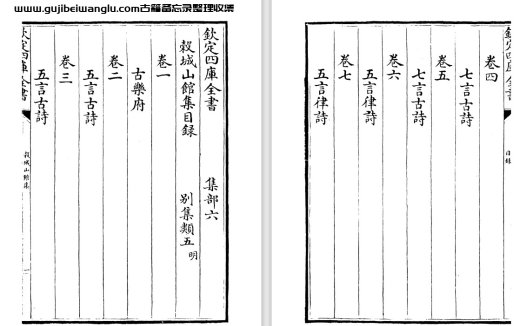 www.gujibeiwanglu.com古籍备忘录整理收集
欽定四庫全書 集部六
穀城山館集目録 別集類五 明
卷一
古樂府
卷二
五言古詩
卷三
五言古詩
欽定四庫全書 穀城山館集
欽定四庫全書 目録
卷四
七言古詩
卷五
七言古詩
卷六
五言律詩
卷七
五言律詩